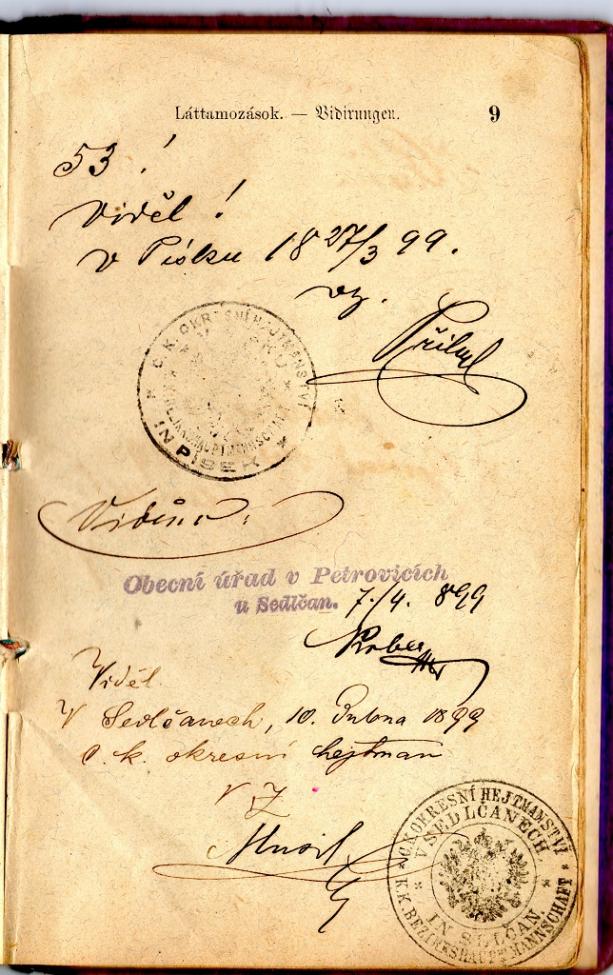 Láttamozások. — Vidirungen. 9
53!
Viděl!
v Písku 18 27/3 99.
vz.
C. K. OKRESNÍ HEJTMANSTVÍ
V PÍSKU
BEZIRKSHAUPTMANNSCHAFT
IN PISEK
Viděno:
Obecní úřad v Petrovicích
u Sedlčan.
7./4. 899
Viděl
V Sedlčanech, 10. Dubna 1899
c. k. okresní hejtman
V Z
Musil
C.K. OKRESNÍ HEJTMANSTVÍ
V SEDLČANECH
K.K. BEZIRKSHAUPTMANNSCHAFT
IN SELČAN